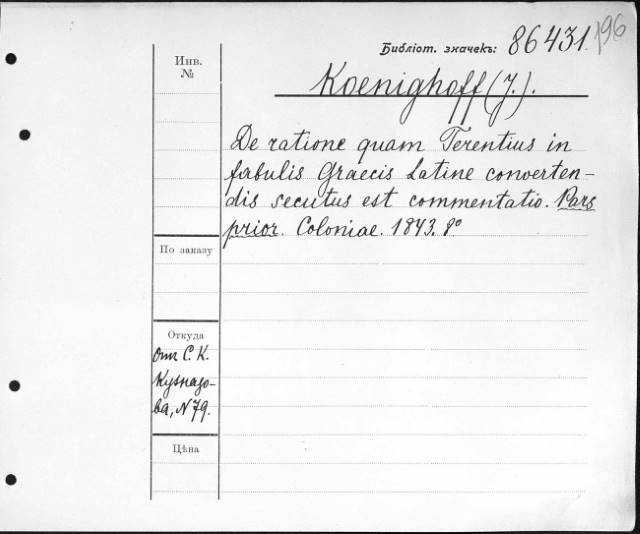 Библіот. значекъ: 86431. 196
Инв.
№
Koenighoff (J.).
De ratione quam Terentius in
fabulis Graecis Latine converten-
dis secutus est commentatio. Pars
prior. Coloniae. 1843. 8°
По заказу
Откуда
Отъ С. К.
Кузнецо-
ва, N 79.
Цѣна